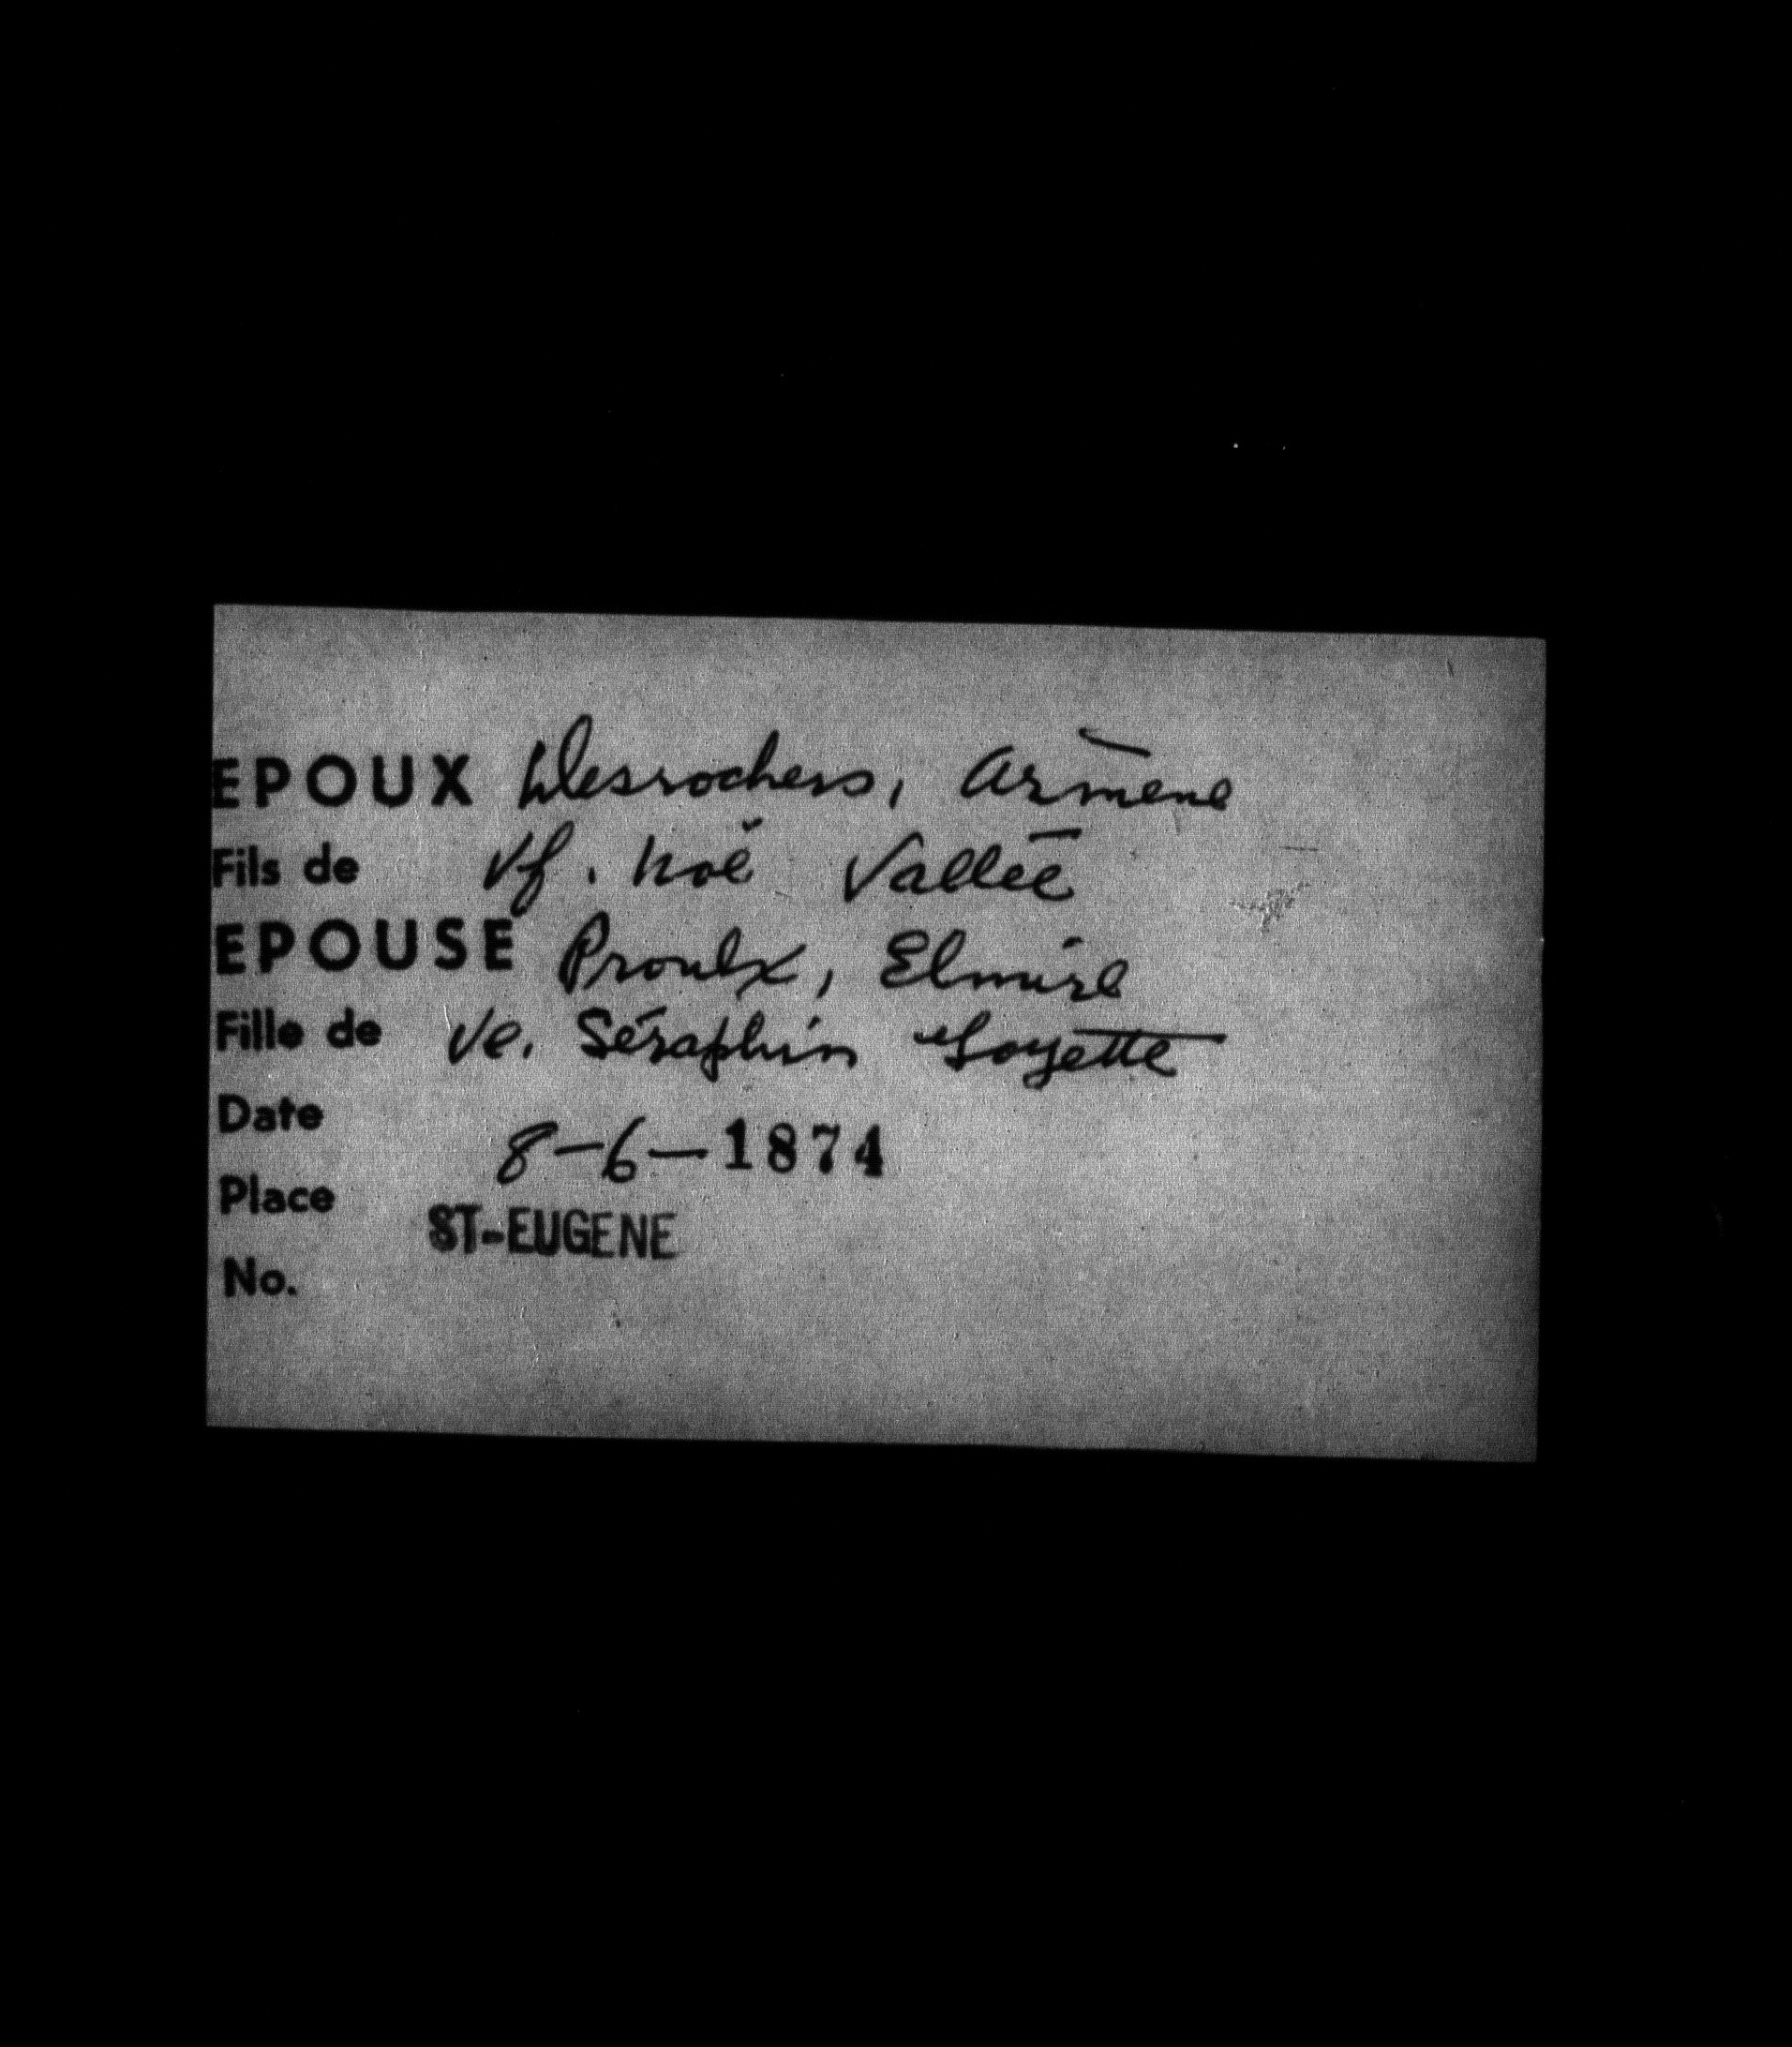 EPOUX Desrochers, Armène
Fils de Vf. Noé Vallée
EPOUSE Proulx, Elmire
Fille de Ve. Séraphin Goyette
Date 8-6-1874
Place ST-EUGENE
No.